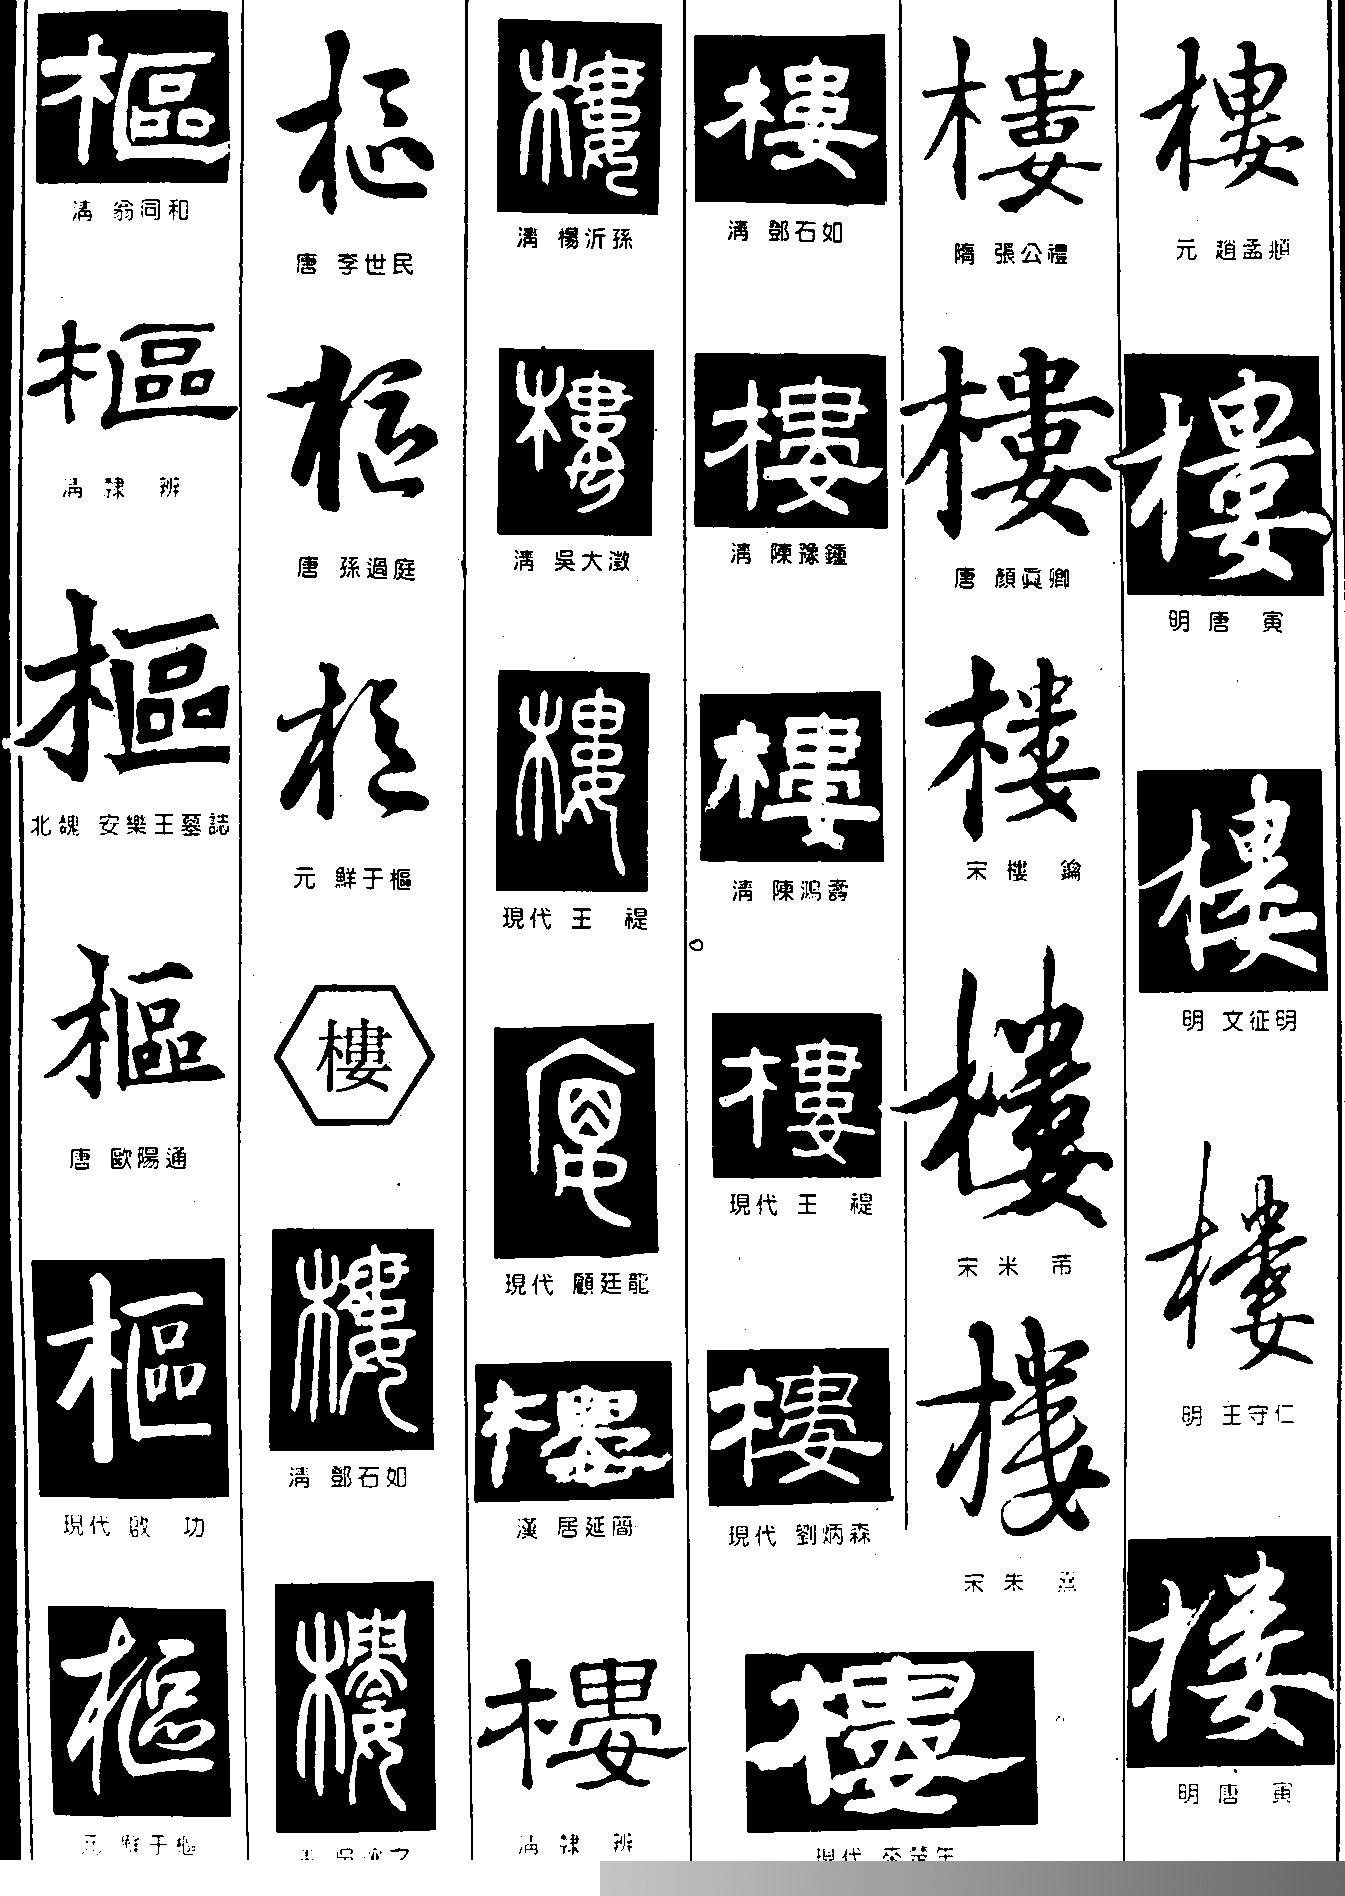 樞
清 翁同和
樞
清 隸 辨
樞
北魏 安樂王墓誌
樞
唐 歐陽通
樞
現代 啟 功
樞
元 鮮于樞
樞
唐 李世民
樞
唐 孫過庭
樞
元 鮮于樞
樓
樓
清 鄧石如
樓
樓
清 楊沂孫
樓
清 吳大澂
樓
現代 王 禔
現代 顧廷龍
樓
漢 居延簡
樓
清 隸 辨
樓
清 鄧石如
樓
清 陳豫鍾
樓
清 陳鴻壽
樓
現代 王 禔
樓
現代 劉炳森
樓
樓
隋 張公禮
樓
唐 顏真卿
樓
宋 樓 鑰
樓
宋 米 芾
樓
宋 朱 熹
樓
元 趙孟頫
樓
明 唐 寅
樓
明 文征明
樓
明 王守仁
樓
明 唐 寅